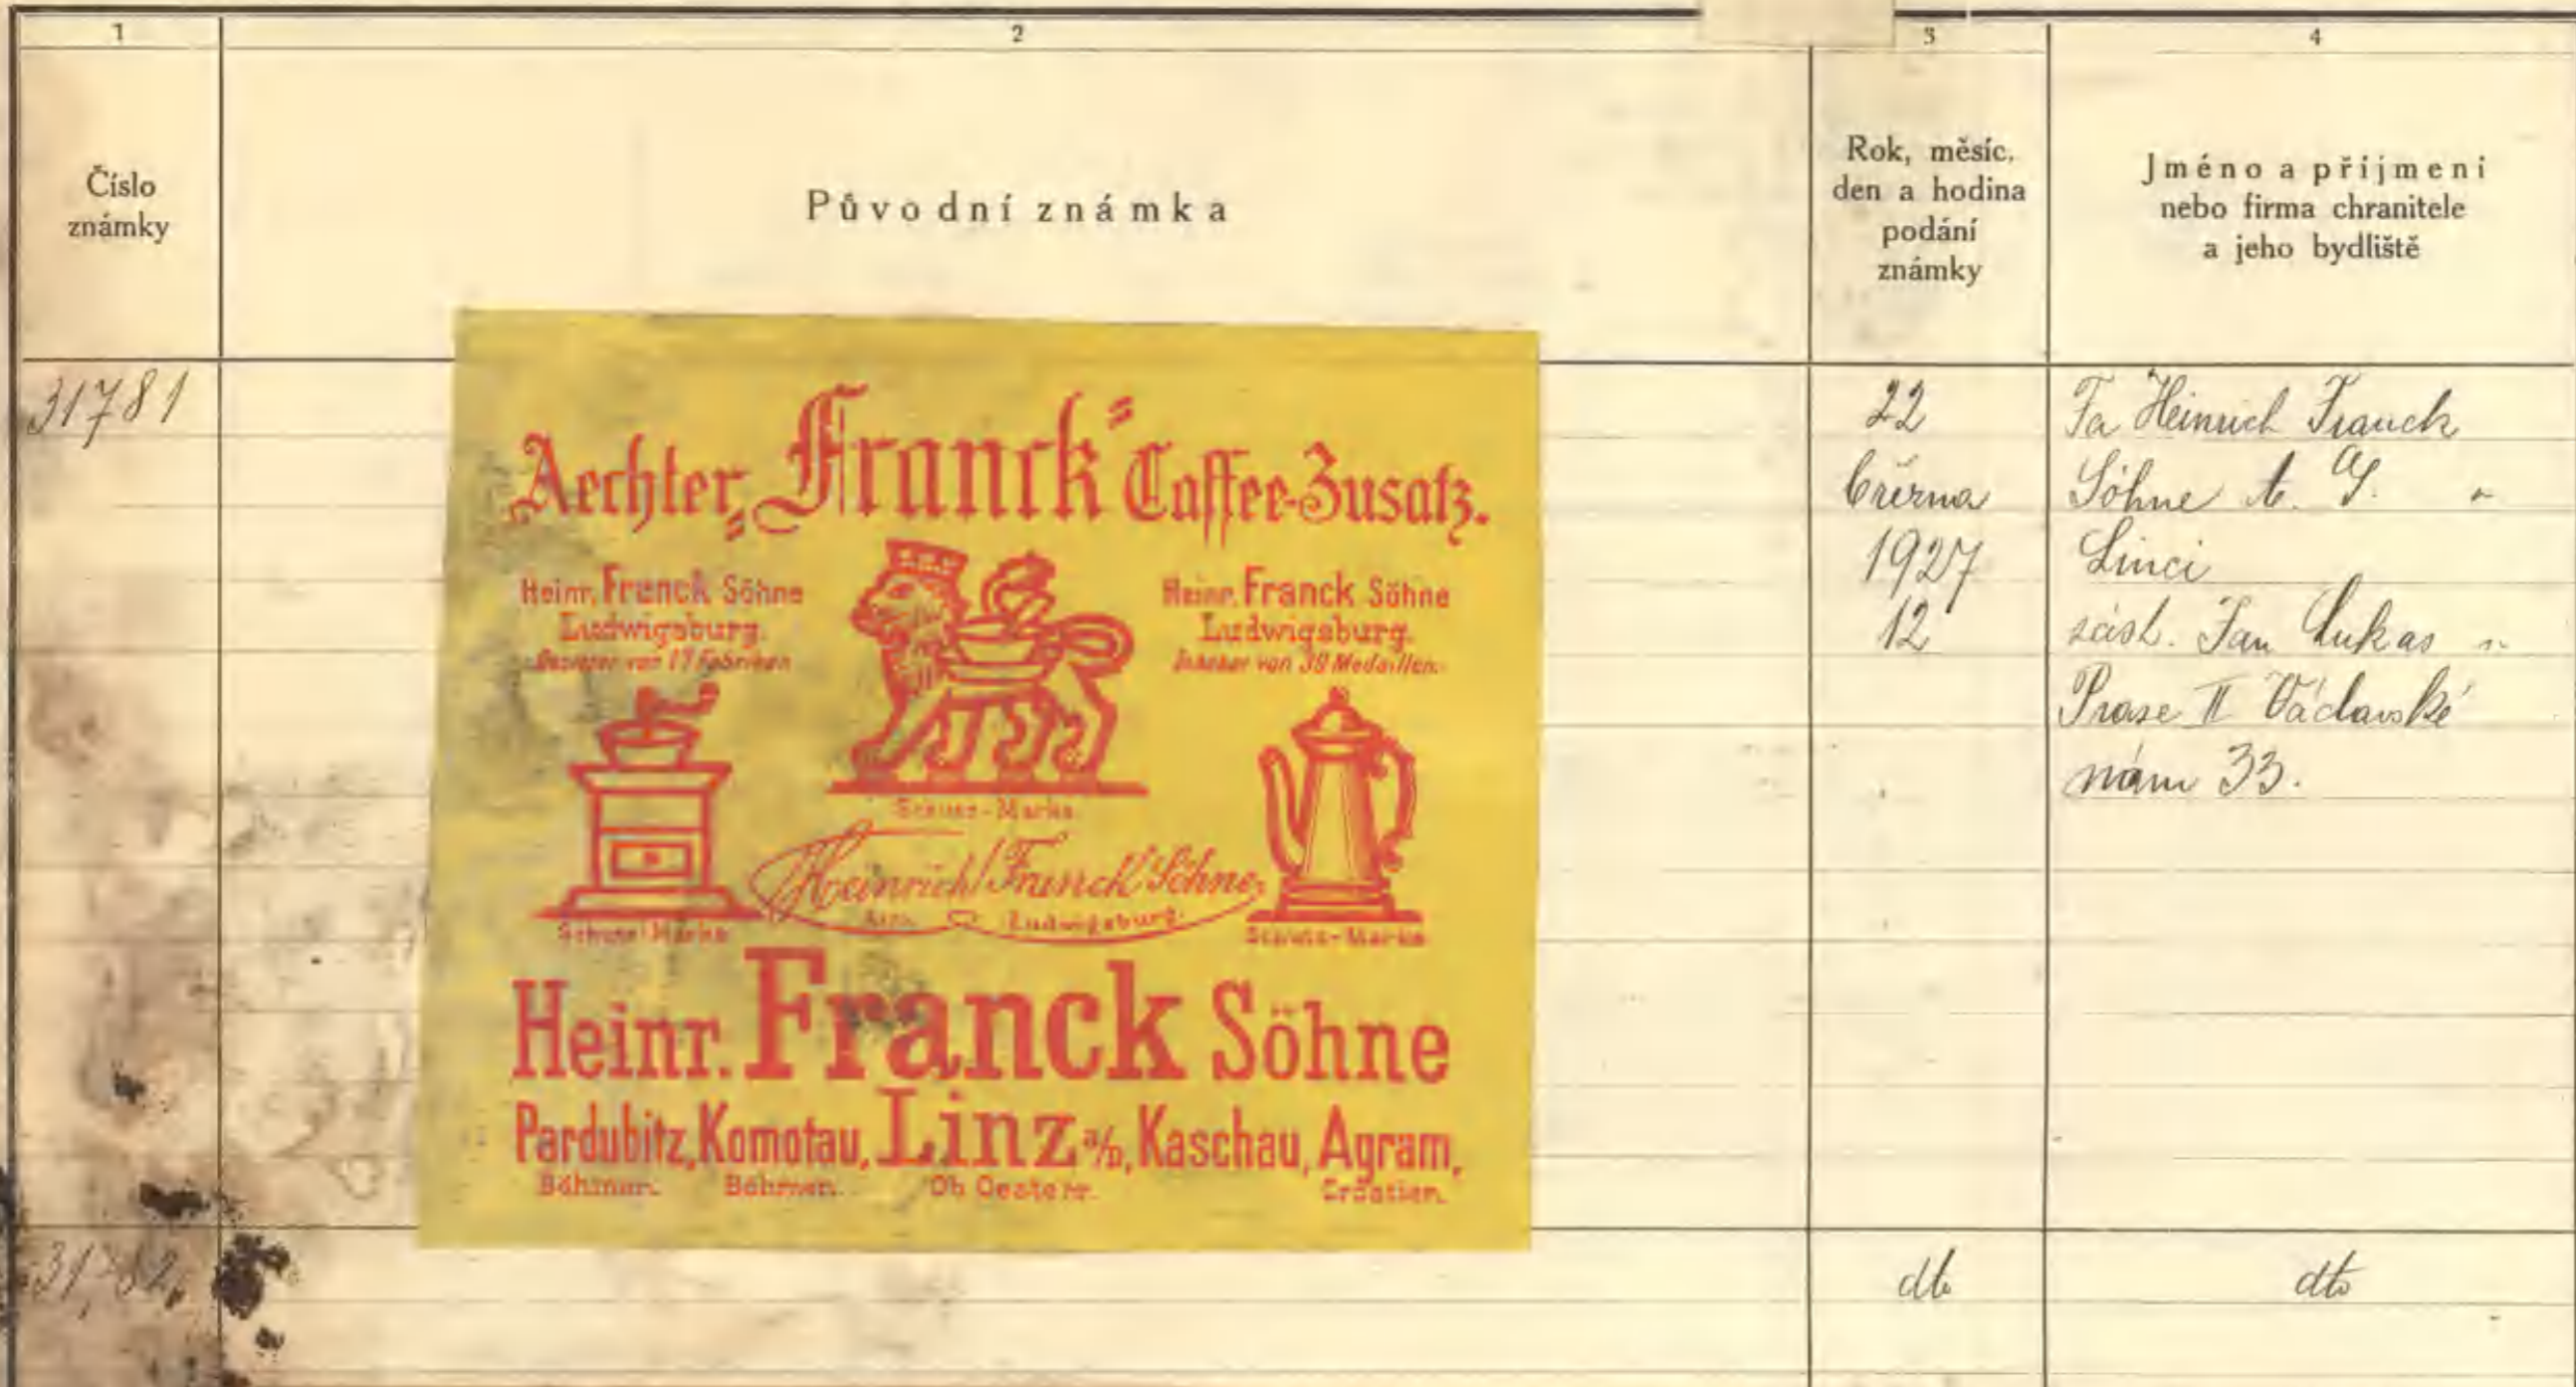 1
2
3
4
Číslo
známky
Původní známka
Rok, měsíc,
den a hodina
podání
známky
Jméno a příjmení
nebo firma chranitele
a jeho bydliště
31781
Aechter „Franck“ Caffee-Zusatz.
Heinr. Franck Söhne
Ludwigsburg.
Besitzer von 17 Fabriken
Heinr. Franck Söhne
Ludwigsburg.
Inhaber von 39 Medaillen.
Schutz-Marke
Heinrich Franck Söhne
Ludwigsburg.
Schutz-Marke
Schutz-Marke
Heinr. Franck Söhne
Pardubitz, Komotau, Linz a/D, Kaschau, Agram,
Böhmen. Böhmen. Ob Oesterr. Croatien.
22
března
1927
12
Fa Heinrich Franck
Söhne A. G. v
Linci
zást. Jan Lukas v
Praze II Václavské
nám 33.
31782
dto
dto